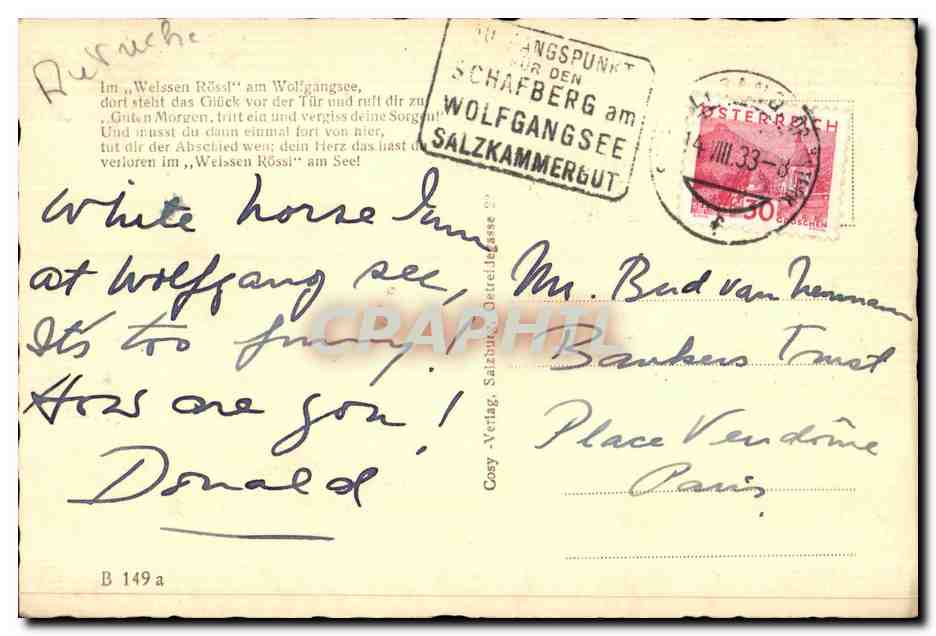 Autriche
Im „Weissen Rössl“ am Wolfgangsee,
dort steht das Glück vor der Tür und ruft dir zu
„Guten Morgen, tritt ein und vergiss deine Sorgen!
Und musst du dann einmal fort von hier,
tut dir der Abschied weh; dein Herz das hast du
verloren im „Weissen Rössl“ am See!
FÜR DEN
SCHAFBERG am
WOLFGANGSEE
SALZKAMMERGUT
ÖSTERREICH
14.VIII.33-8
30
GROSCHEN
White horse Inn
at Wolfgang see,
It's too funny!
How are you!
Donald
B 149 a
Cosy-Verlag, Salzburg, Getreidegasse
Mr. Bud van
Bankers Trust
Place Vendôme
Paris
CRAPHIL